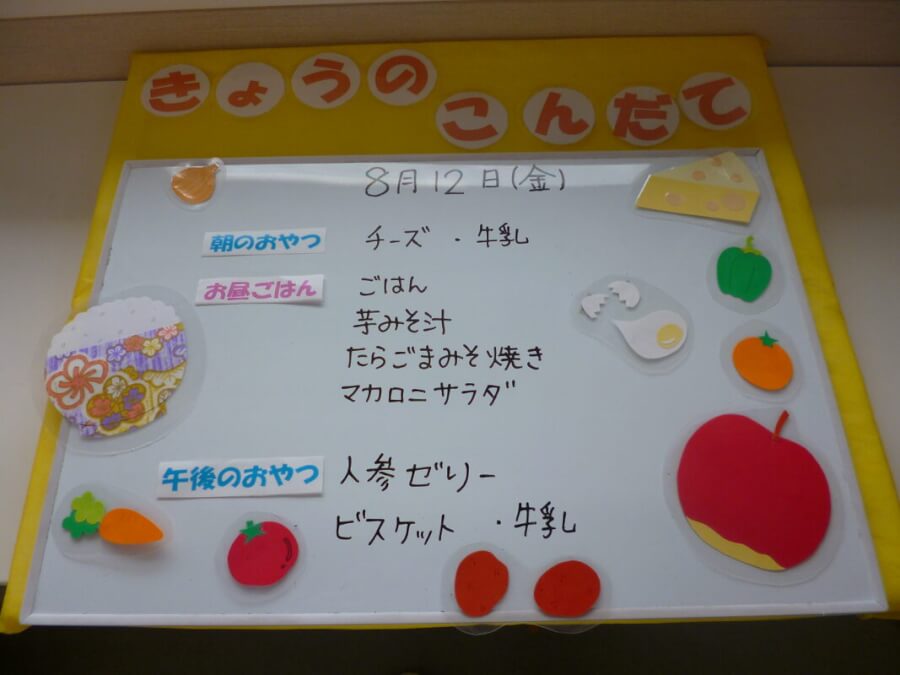 きょうの
こんだて
8月12日(金)
朝のおやつ チーズ ・ 牛乳
お昼ごはん ごはん
芋みそ汁
たらごまみそ焼き
マカロニサラダ
午後のおやつ 人参ゼリー
ビスケット ・牛乳